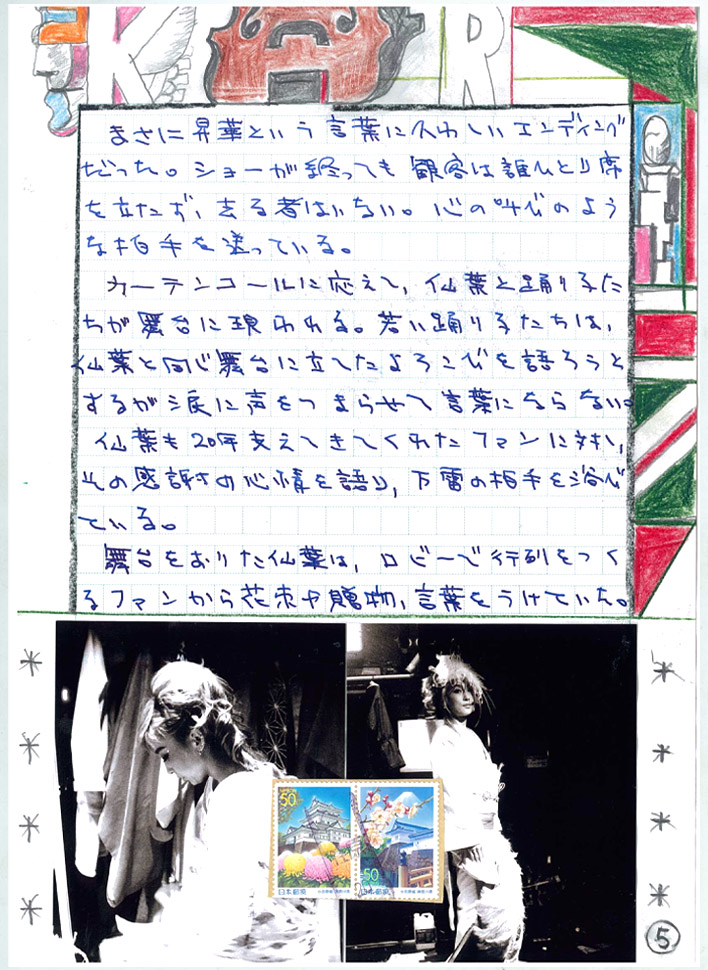 K
R
まさに昇華という言葉にふさわしいエンディング
だった。ショーが終っても観客は誰ひとり席
を立たず、去る者はいない。心の叫びのよう
な拍手を送っている。
カーテンコールに応えて、仙葉と踊り子た
ちが舞台に現われる。若い踊り子たちは、
仙葉と同じ舞台に立てたよろこびを語ろうと
するが涙に声をつまらせて言葉にならない。
仙葉も20年支えてきてくれたファンに対し、
その感謝の心情を語り、万雷の拍手を浴び
ている。
舞台をおりた仙葉は、ロビーで行列をつく
るファンから花束や贈物、言葉をうけていた。
50
日本郵便
50
日本郵便
5